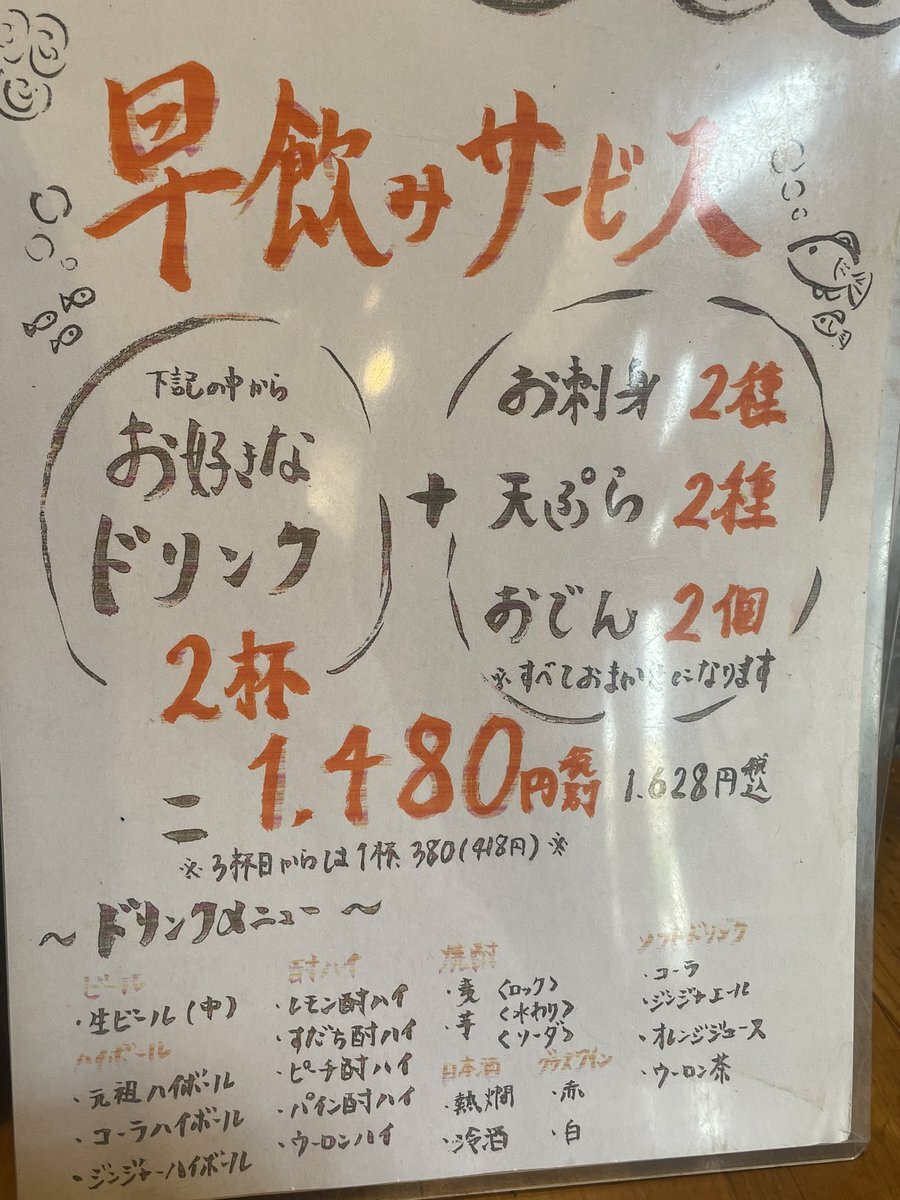 早飲みサービス
下記の中から
お好きな
ドリンク
2杯
+
お刺身 2種
天ぷら 2種
おでん 2個
※すべておまかせになります
=1.480円税別 1.628円税込
※3杯目からは1杯 380(418円)※
～ドリンクメニュー～
ビール
・生ビール(中)
ハイボール
・元祖ハイボール
・コーラハイボール
・ジンジャーハイボール
酎ハイ
・レモン酎ハイ
・すだち酎ハイ
・ピーチ酎ハイ
・パイン酎ハイ
・ウーロンハイ
焼酎
・麦 〈ロック〉
・芋 〈水わり〉
〈ソーダ〉
日本酒
・熱燗
・冷酒
グラスワイン
・赤
・白
ソフトドリンク
・コーラ
・ジンジャエール
・オレンジジュース
・ウーロン茶